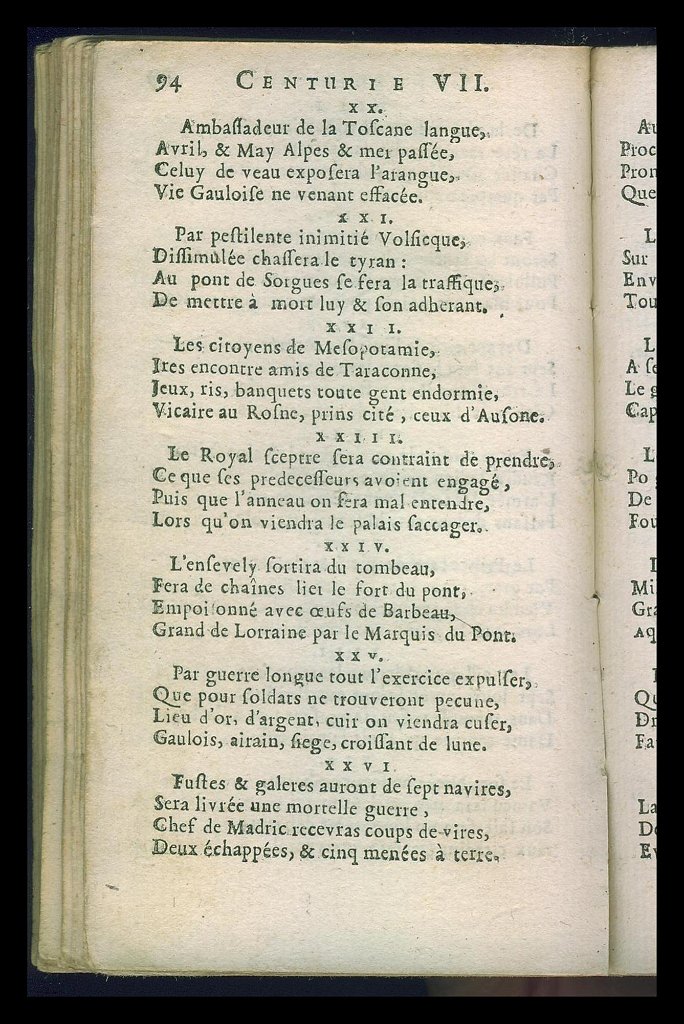 94 CENTURIE VII.
XX.
Ambaſſadeur de la Toſcane langue,
Avril, & May Alpes & mer paſſée,
Celuy de veau expoſera l'arangue,
Vie Gauloiſe ne venant effacée.
XXI.
Par peſtilente inimitié Volſicque,
Diſſimulée chaſſera le tyran :
Au pont de Sorgues ſe fera la traffique,
De mettre à mort luy & ſon adherant.
XXII.
Les citoyens de Meſopotamie,
Ires encontre amis de Taraconne,
Jeux, ris, banquets toute gent endormie,
Vicaire au Roſne, prins cité, ceux d'Auſone.
XXIII.
Le Royal ſceptre ſera contraint de prendre,
Ce que ſes predeceſſeurs avoient engagé,
Puis que l'anneau on fera mal entendre,
Lors qu'on viendra le palais ſaccager.
XXIV.
L'enſevely ſortira du tombeau,
Fera de chaînes lier le fort du pont,
Empoiſonné avec œufs de Barbeau,
Grand de Lorraine par le Marquis du Pont.
XXV.
Par guerre longue tout l'exercice expulſer,
Que pour ſoldats ne trouveront pecune,
Lieu d'or, d'argent, cuir on viendra cuſer,
Gaulois, airain, ſiege, croiſſant de lune.
XXVI.
Fuſtes & galeres auront de ſept navires,
Sera livrée une mortelle guerre,
Chef de Madric recevras coups de vires,
Deux échappées, & cinq menées à terre.